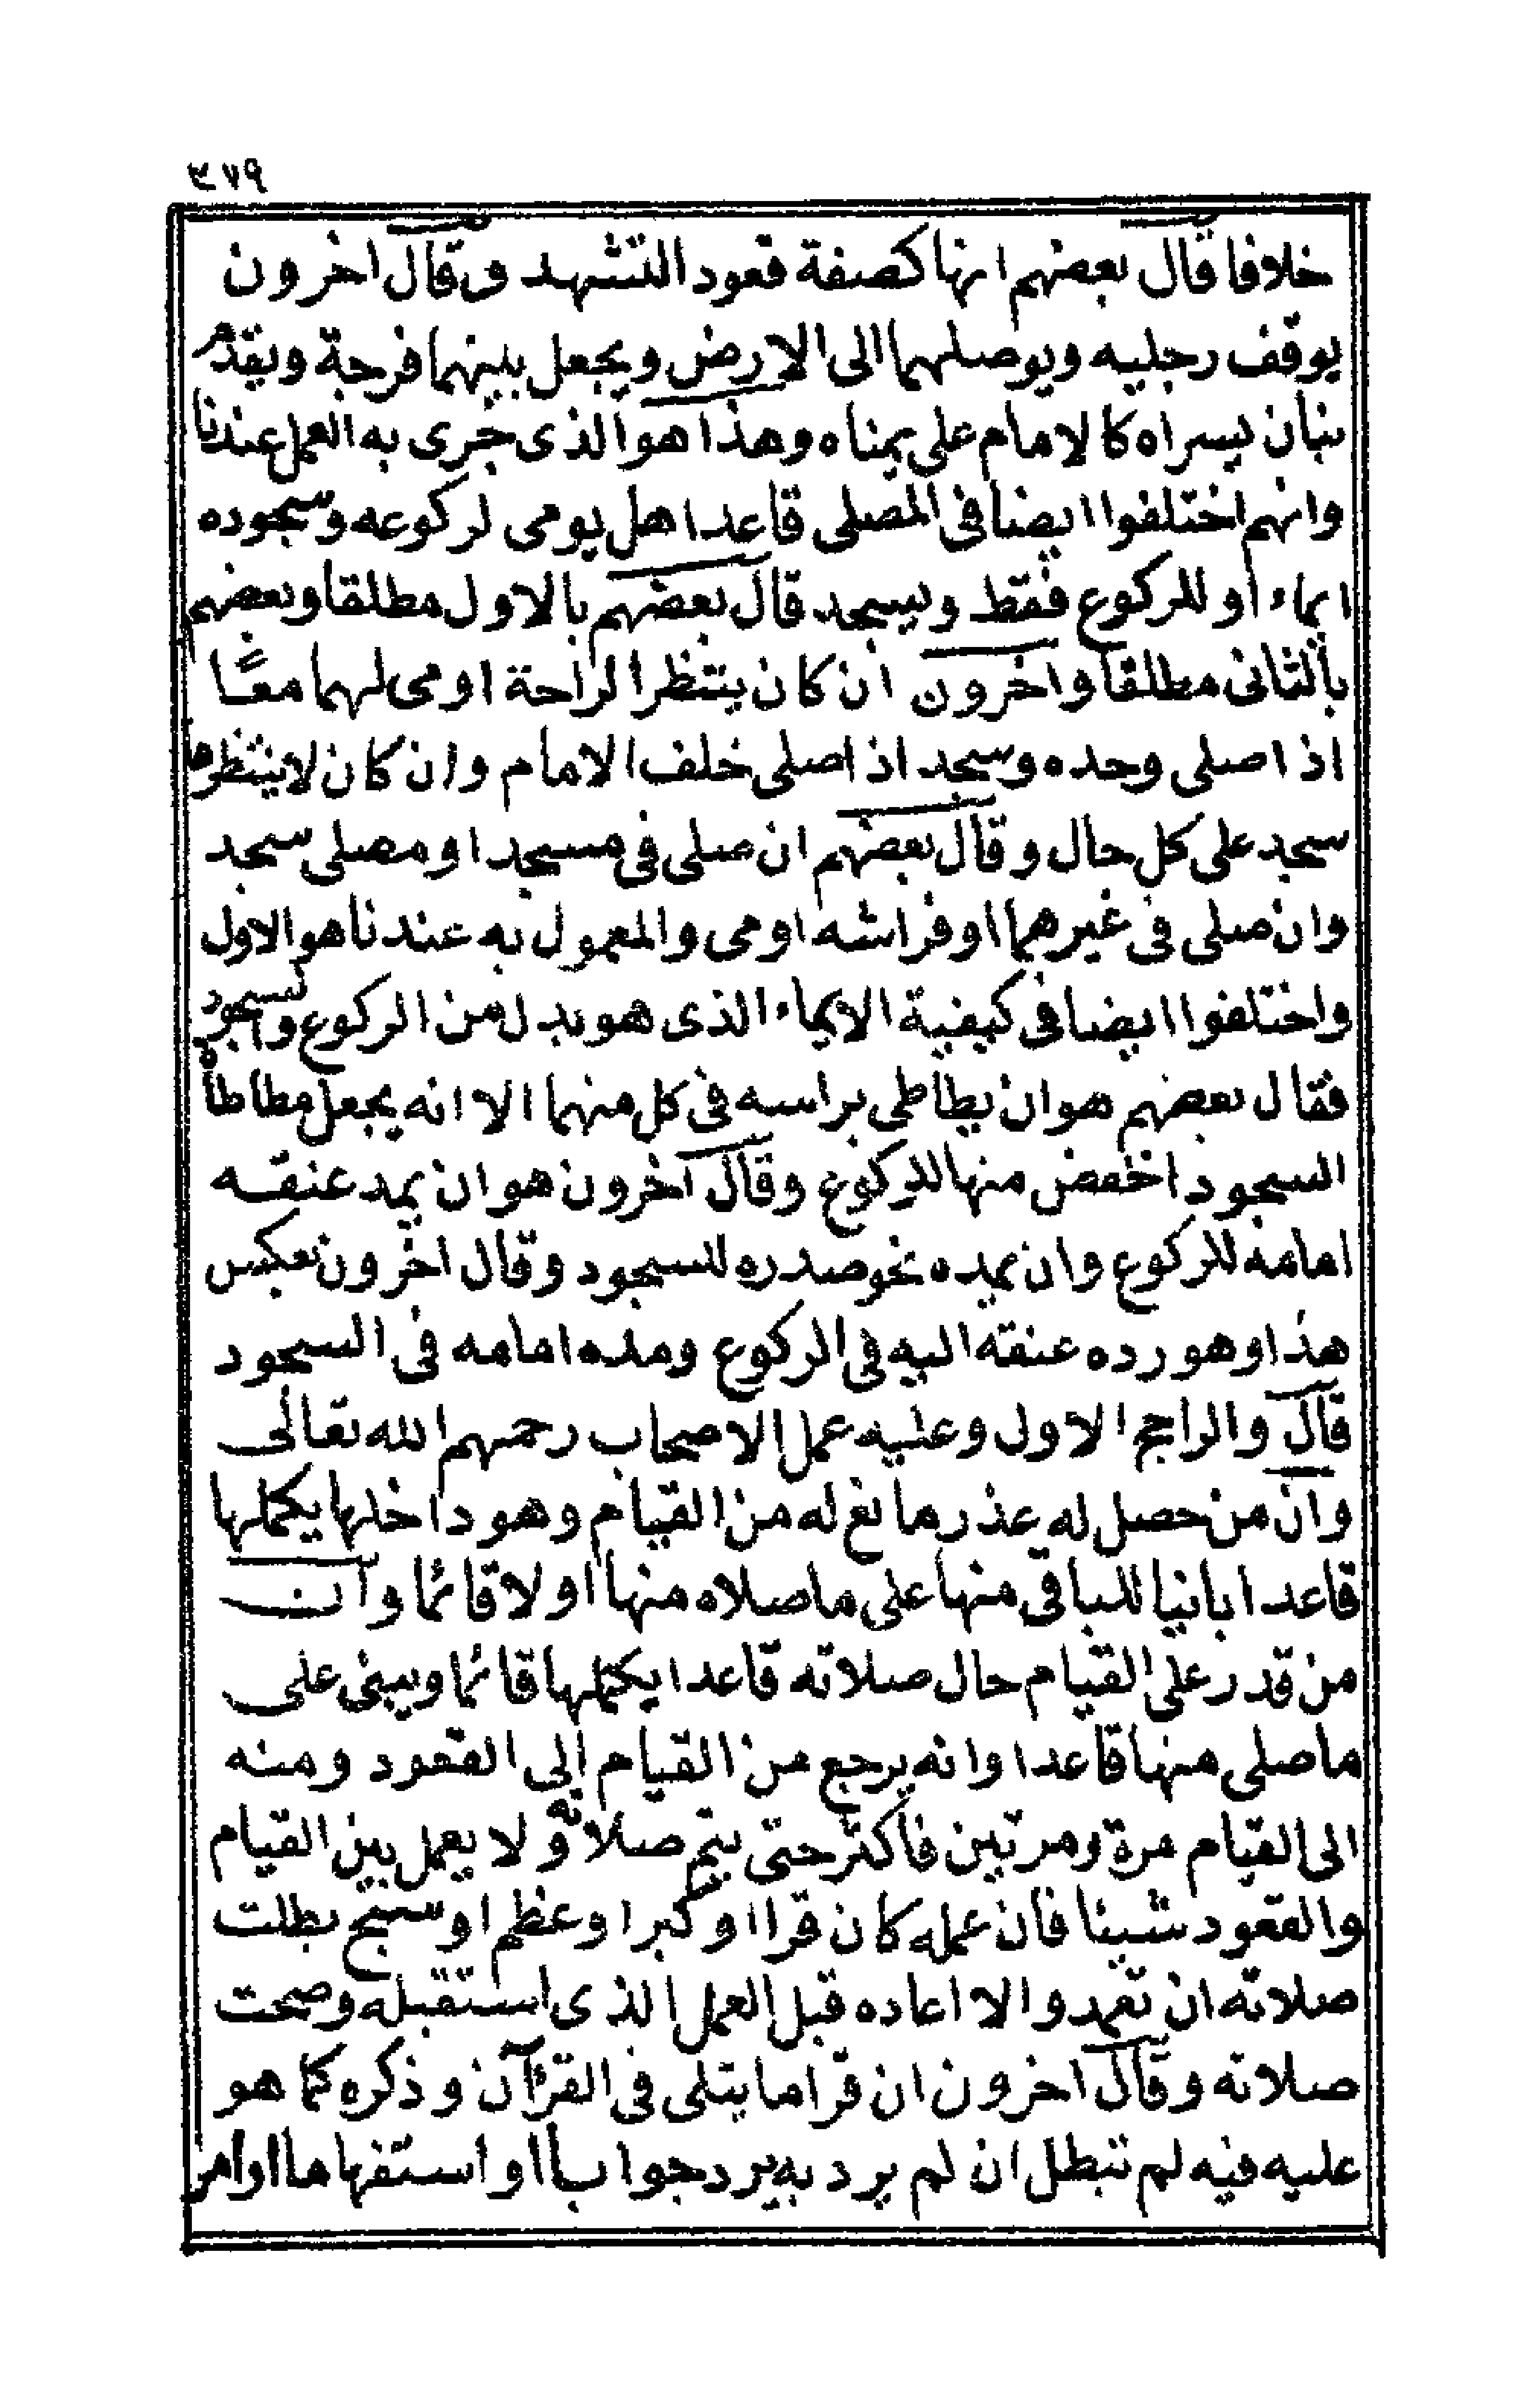 ٣٧٩
خلافا قال بعضهم انها كصفة قعود التشهد وقال اخرون
يوقف رجليه ويوصلهما الى الارض ويجعل بينهما فرجة ويقدم
بنان يسراه كالامام على يمناه وهذا هو الذى جرى به العمل عندنا
وانهم اختلفوا ايضا فى المصلى قاعدا هل يومى لركوعه وسجوده
ايماء او للركوع فقط ويسجد قال بعضهم بالاول مطلقا وبعضهم
بالثانى مطلقا واخرون ان كان ينتظر الراحة اومى لهما معًا
اذا صلى وحده وسجد اذا صلى خلف الامام وان كان لا ينتظرها
سجد على كل حال وقال بعضهم ان صلى فى مسجد او مصلى سجد
وان صلى فى غيرهما او فراشه اومى والمعمول به عندنا هو الاول
واختلفوا ايضا فى كيفية الايماء الذى هو بدل من الركوع والسجود
فقال بعضهم هو ان يطاطى براسه فى كل منهما الا انه يجعل مطاطأة
السجود اخفض منها للركوع وقال آخرون هو ان يمد عنقه
امامه للركوع وان يمده نحو صدره للسجود وقال اخرون بعكس
هذا وهو رده عنقه اليه فى الركوع ومده امامه فى السجود
قال والراجح الاول وعليه عمل الاصحاب رحمهم الله تعالى
وان من حصل له عذر مانع له من القيام وهو داخلها يكملها
قاعدا بانيا للباقى منها على ما صلاه منها اولا قائما وان
من قدر على القيام حال صلاته قاعدا يكملها قائما ويبنى على
ما صلى منها قاعدا وانه يرجع من القيام الى القعود ومنه
الى القيام مرة ومرتين فأكثر حتى يتم صلاته ولا يعمل بين القيام
والقعود شيئا فان عمله كان قرا او كبرا وعظم او سبح بطلت
صلاته ان تعمد والا اعاده قبل العمل الذى استقبله وصحت
صلاته وقال اخرون ان قرا ما يتلى فى القرآن وذكره كما هو
عليه فيه لم تبطل ان لم يرد به يرد جوابا او استفهاما او امر